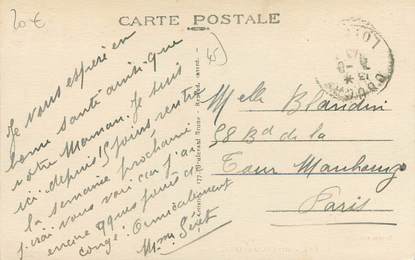 20€
CARTE POSTALE
45
Je vous espère en
bonne santé ainsi que
votre Maman. Je suis
ici depuis 15 jours rentre
la semaine prochaine
J'irai vous voir car j'ai
encore qques jours de
congé. Amicalement
Mme
Melle Blandin
58 Bd de la
Tour Maubourg
Paris